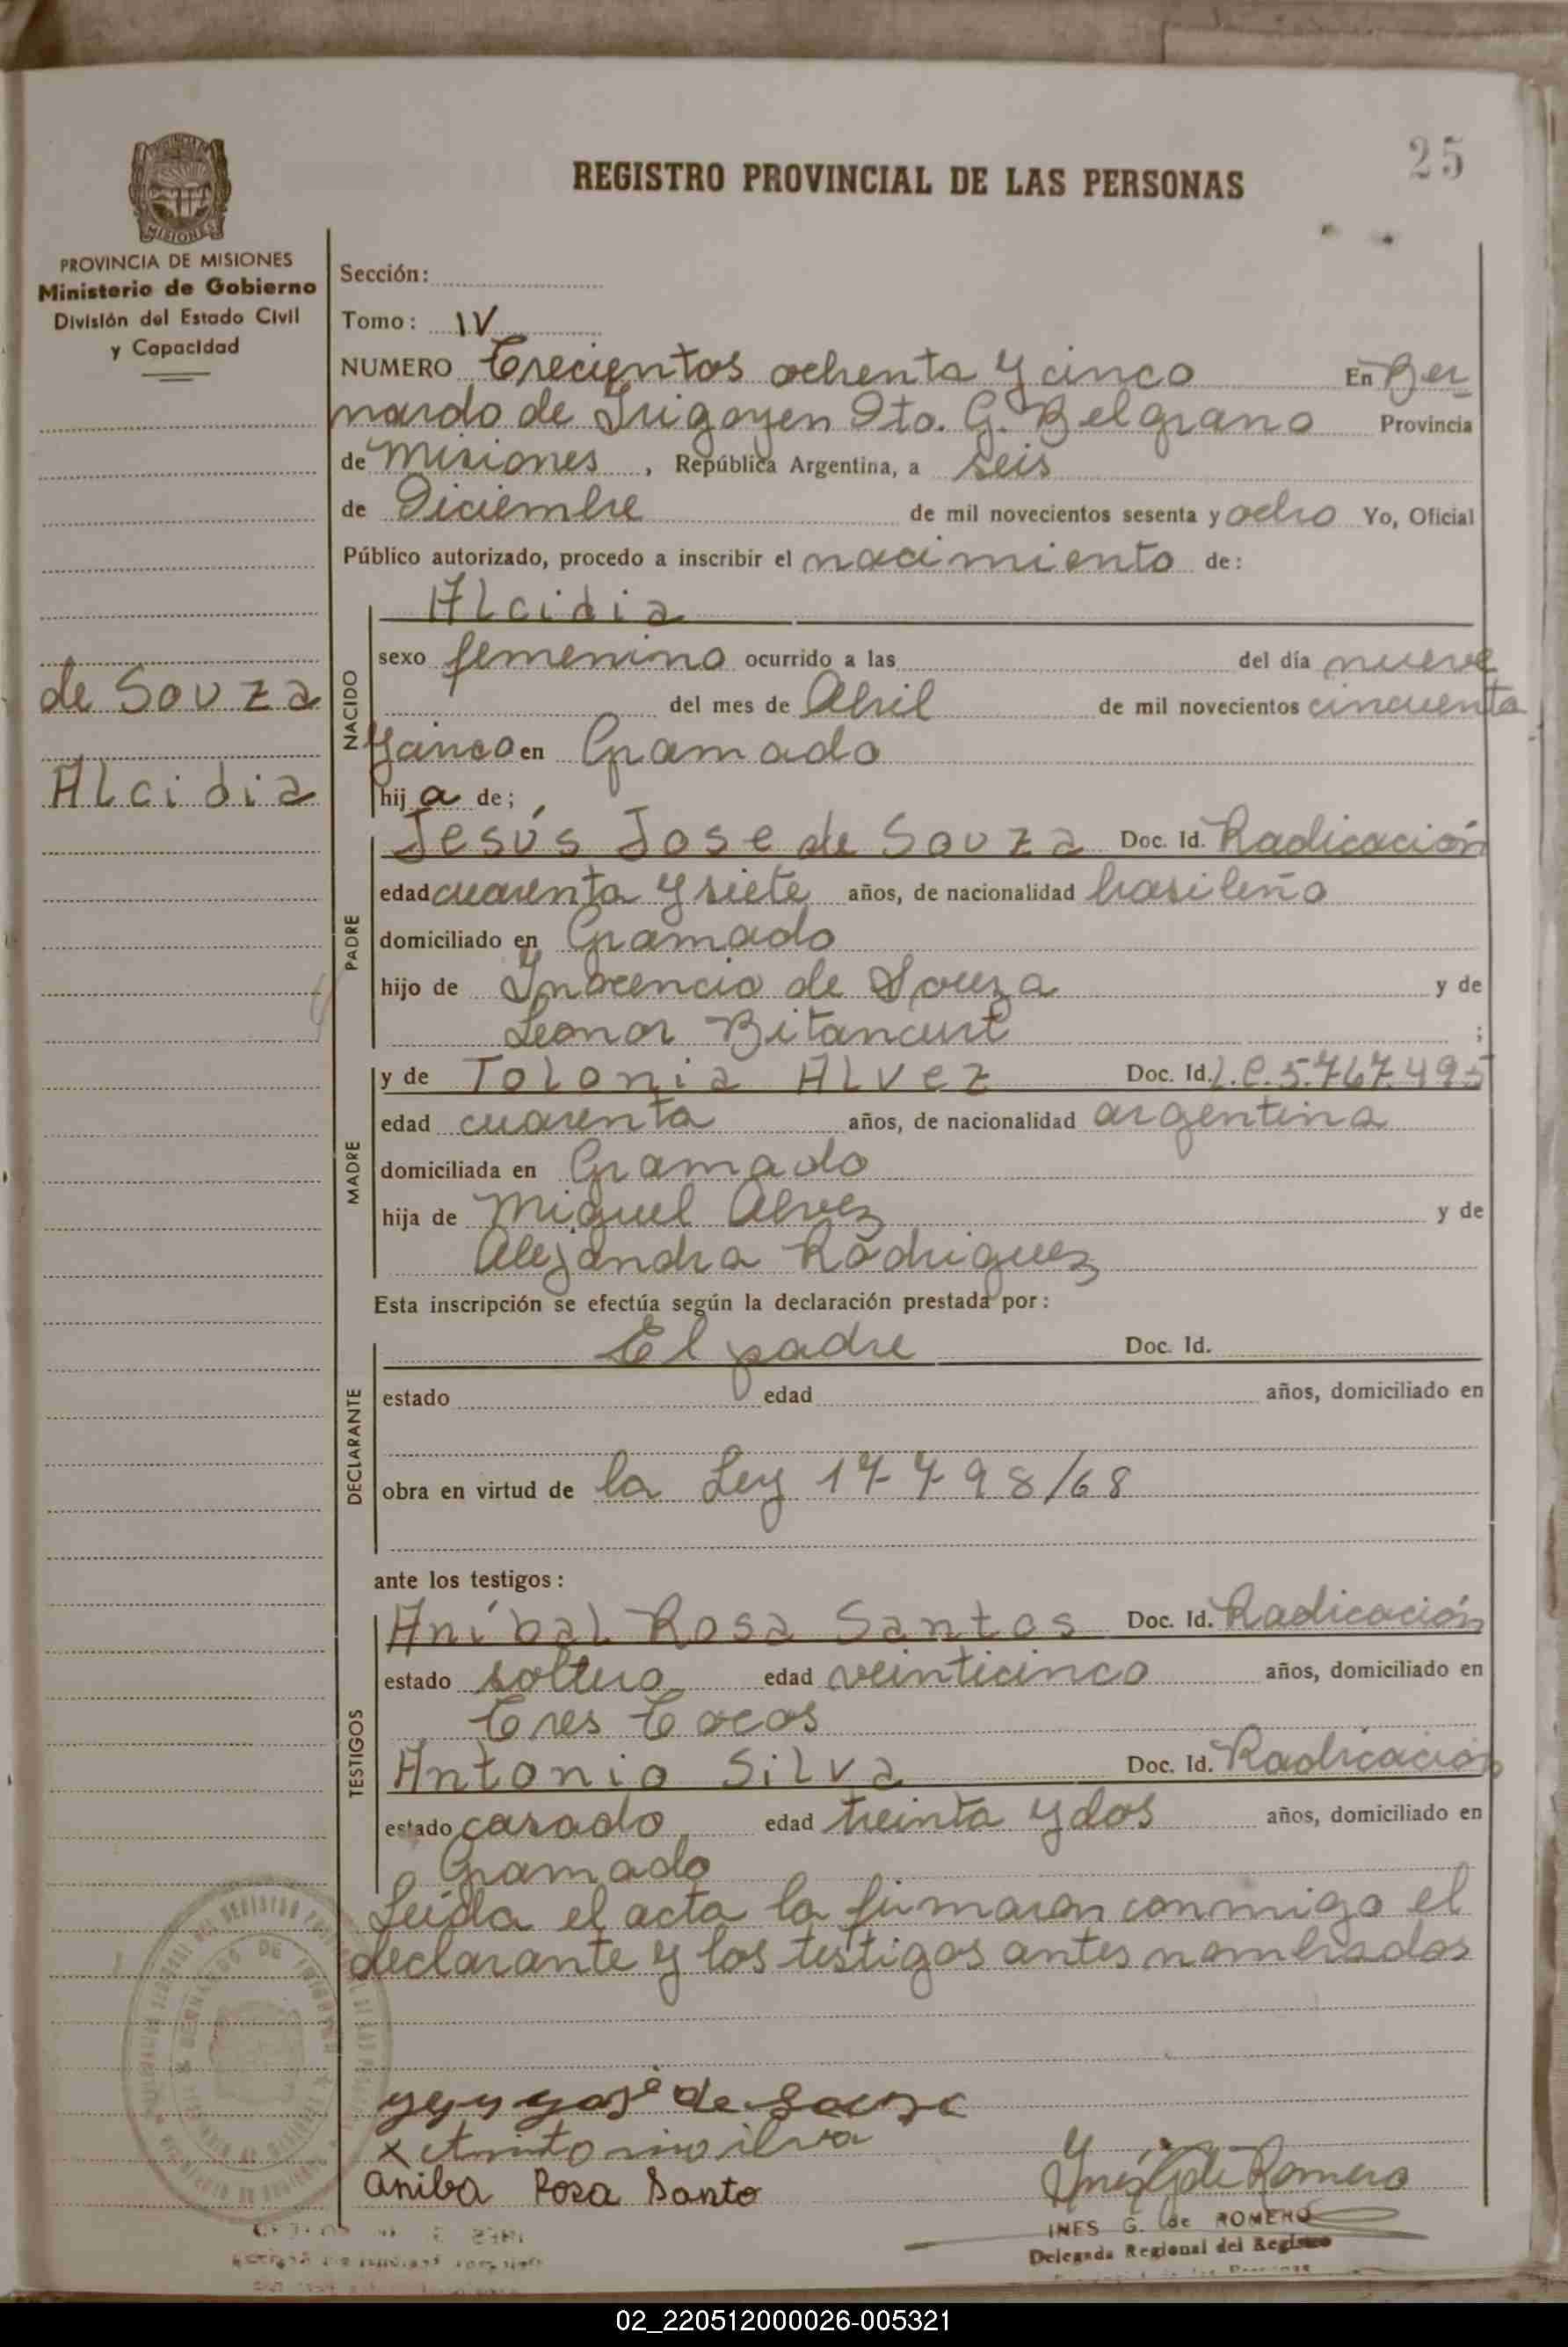 25
REGISTRO PROVINCIAL DE LAS PERSONAS
MISIONES
PROVINCIA DE MISIONES
Ministerio de Gobierno
División del Estado Civil
y Capacidad
Sección:
Tomo: IV
NUMERO Trecientos ochenta y cinco En Ber
nardo de Irigoyen Dto. G. Belgrano Provincia
de Misiones, República Argentina, a seis
de Diciembre de mil novecientos sesenta y ocho Yo, Oficial
Público autorizado, procedo a inscribir el nacimiento de:
Alcidia
NACIDO
sexo femenino ocurrido a las del día nueve
de Souza
del mes de Abril de mil novecientos cincuenta
y cinco en Gramado
Alcidia
hija de;
PADRE
Jesús Jose de Souza Doc. Id. Radicación
edad cuarenta y siete años, de nacionalidad brasileño
domiciliado en Gramado
hijo de Inocencio de Souza y de
Leonor Bitancurt ;
MADRE
y de Tolonia Alvez Doc. Id. L.C. 5.767.495
edad cuarenta años, de nacionalidad argentina
domiciliada en Gramado
hija de Miguel Alvez y de
Alejandra Rodriguez
Esta inscripción se efectúa según la declaración prestada por:
DECLARANTE
El padre Doc. Id.
estado edad años, domiciliado en
obra en virtud de la Ley 17798/68
ante los testigos:
TESTIGOS
Aníbal Rosa Santos Doc. Id. Radicación
estado soltero edad veinticinco años, domiciliado en
Tres Tocos
Antonio Silva Doc. Id. Radicación
estado casado edad treinta y dos años, domiciliado en
Gramado
Leída el acta la firmaron conmigo el
declarante y los testigos antes nombrados
de Souza
x Antonio silva
aniba Rosa Santo
Inés G de Romero
INES G. de ROMERO
Delegada Regional del Registro
02_220512000026-005321